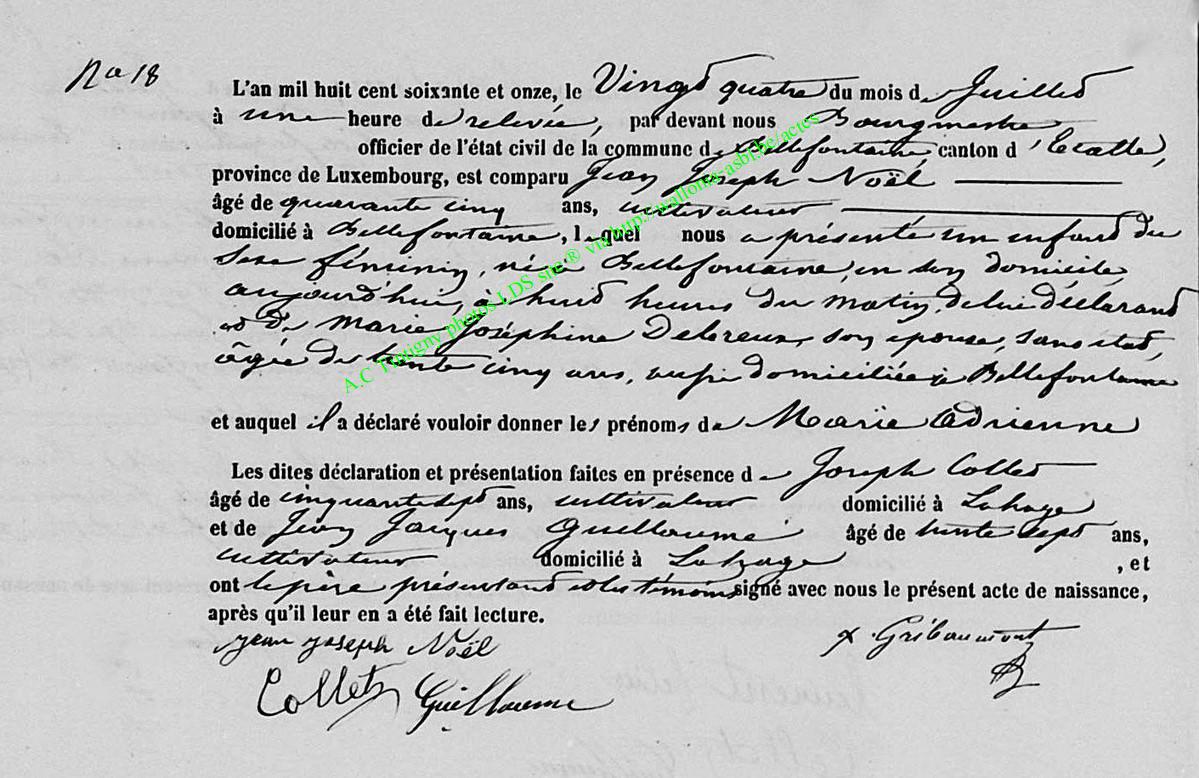 No 18
L'an mil huit cent soixante et onze, le Vingt quatre du mois de Juillet
à une heure de relevée, par devant nous Bourgmestre
officier de l'état civil de la commune de Bellefontaine, canton d'Etalle,
province de Luxembourg, est comparu Jean Joseph Noël
âgé de quarante cinq ans, cultivateur
domicilié à Bellefontaine, lequel nous a présenté un enfant du
sexe féminin, né à Bellefontaine, en son domicile,
aujourd'hui, à huit heures du matin, de lui déclarant
et de Marie Joséphine son épouse, sans état,
âgée de trente cinq ans, aussi domiciliée à Bellefontaine
et auquel il a déclaré vouloir donner les prénoms de Marie Adrienne
Les dites déclaration et présentation faites en présence de Joseph Collet
âgé de cinquante sept ans, cultivateur domicilié à Lahage
et de Jean Jacques Guillaume âgé de trente sept ans,
cultivateur domicilié à Lahage, et
ont le père présentant et les témoins signé avec nous le présent acte de naissance,
après qu'il leur en a été fait lecture.
Jean Joseph Noël
Gribaumont
Collet Guillaume
A.C Tintigny photos LDS snc® via http://wallonia-asbl.be/actes